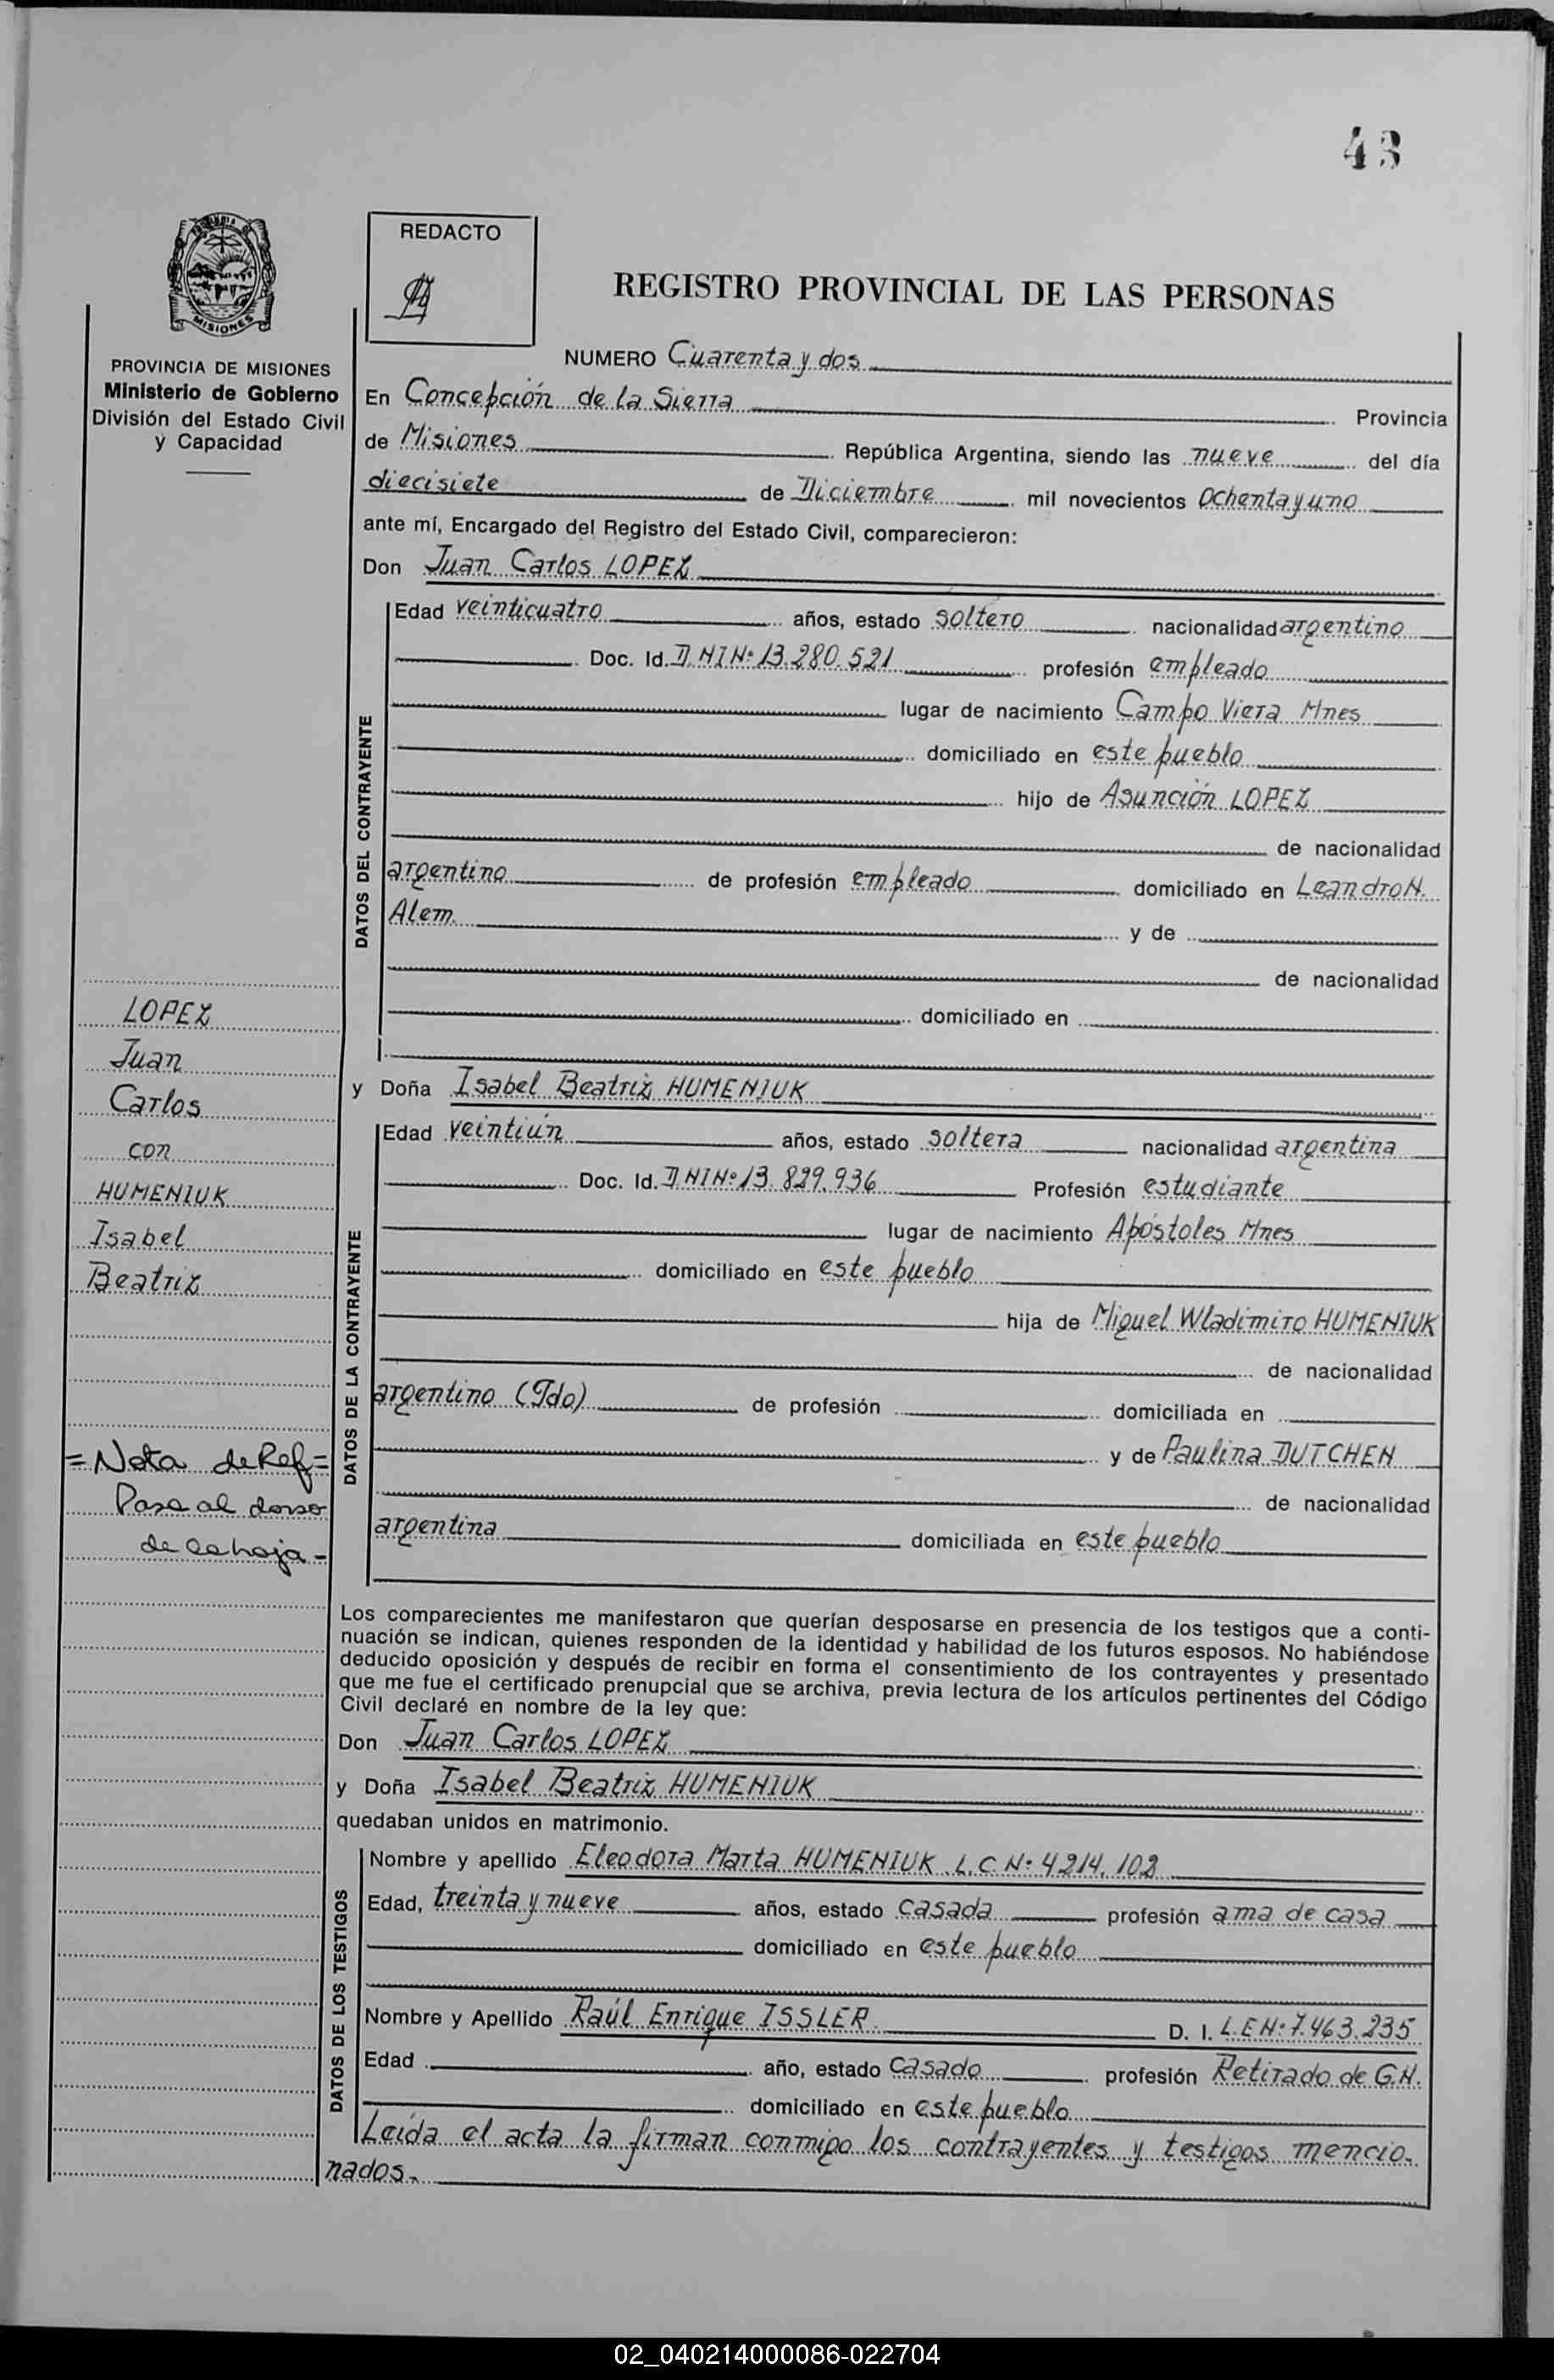 43
REDACTO
REGISTRO PROVINCIAL DE LAS PERSONAS
MISIONES
PROVINCIA DE MISIONES
Ministerio de Gobierno
División del Estado Civil
y Capacidad
NUMERO Cuarenta y dos
En Concepción de la Sierra Provincia
de Misiones República Argentina, siendo las nueve del día
diecisiete de Diciembre mil novecientos Ochenta y uno
ante mí, Encargado del Registro del Estado Civil, comparecieron:
Don Juan Carlos LOPEZ
DATOS DEL CONTRAYENTE
Edad veinticuatro años, estado soltero nacionalidad argentino
Doc. Id. D.N.I Nº 13.280.521 profesión empleado
lugar de nacimiento Campo Viera Mnes
domiciliado en este pueblo
hijo de Asunción LOPEZ
de nacionalidad
argentino de profesión empleado domiciliado en Leandro N.
Alem y de
de nacionalidad
domiciliado en
y Doña Isabel Beatriz HUMENIUK
DATOS DE LA CONTRAYENTE
Edad veintiún años, estado soltera nacionalidad argentina
Doc. Id. D.N.I Nº 13.829.936 Profesión estudiante
lugar de nacimiento Apóstoles Mnes
domiciliado en este pueblo
hija de Miguel Wladimiro HUMENIUK
de nacionalidad
argentino (Fdo) de profesión domiciliada en
y de Paulina DUTCHEN
de nacionalidad
argentina domiciliada en este pueblo
LOPEZ
Juan
Carlos
con
HUMENIUK
Isabel
Beatriz
= Nota de Ref =
Pasa al dorso
de la hoja -
Los comparecientes me manifestaron que querían desposarse en presencia de los testigos que a conti-
nuación se indican, quienes responden de la identidad y habilidad de los futuros esposos. No habiéndose
deducido oposición y después de recibir en forma el consentimiento de los contrayentes y presentado
que me fue el certificado prenupcial que se archiva, previa lectura de los artículos pertinentes del Código
Civil declaré en nombre de la ley que:
Don Juan Carlos LOPEZ
y Doña Isabel Beatriz HUMENIUK
quedaban unidos en matrimonio.
DATOS DE LOS TESTIGOS
Nombre y apellido Eleodora Marta HUMENIUK L.C Nº 4214.102
Edad, treinta y nueve años, estado casada profesión ama de casa
domiciliado en este pueblo
Nombre y Apellido Raúl Enrique ISSLER D. I. L.E Nº 7.463.235
Edad año, estado casado profesión Retirado de G.N.
domiciliado en este pueblo
Leída el acta la firman conmigo los contrayentes y testigos mencio-
nados.
02_040214000086-022704